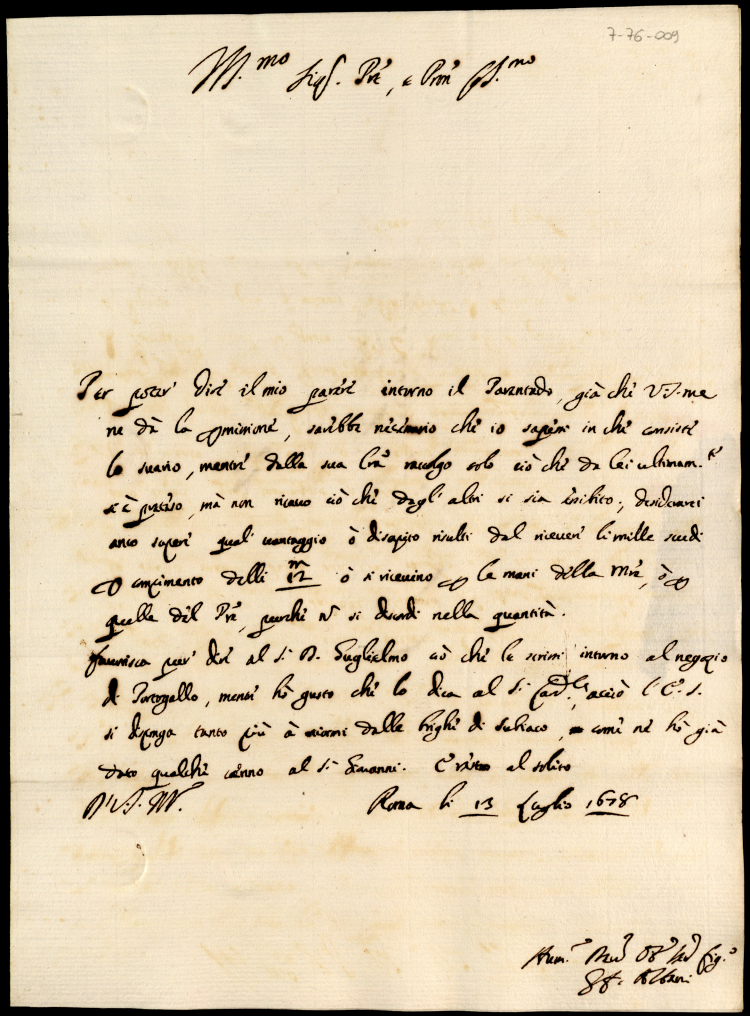 7-76-009
Ill.mo Sig.r Pre, e Pron Oss.mo
Per poter dire il mio parere intorno il Parentado, già che V.S. me
ne dà la permissione, sarebbe necessario che io sapessi in che consiste
lo suario, mentre dalla sua lra racolgo solo ciò che da lei ultimam.te
si è preteso, mà non ricavo ciò che dagl' altri si sia essibito; desiderarei
anco sapere qual' vantaggio ò disapito risulti dal ricevere li mille scudi
per compimento delli 12m ò si ricevino per le mani della Mre, ò per
quelle del Pre, purche n si discordi nella quantità.
Favorisca pure dire al S.r D. Guglielmo ciò che le scrissi intorno al negozio
di Portogallo, mentre hò gusto che lo dica al S.r Card.le, acciò l' E. S.
si disponga tanto più à dalle brighe di Subiaco, come ne hò già
dato qualche cenno al S.r Giovanni. E resto al solito
Di V.S. Ill.
Roma li 13 Luglio 1678
Hum.o Dev.o Obb. Ser. Fig.o
Albani